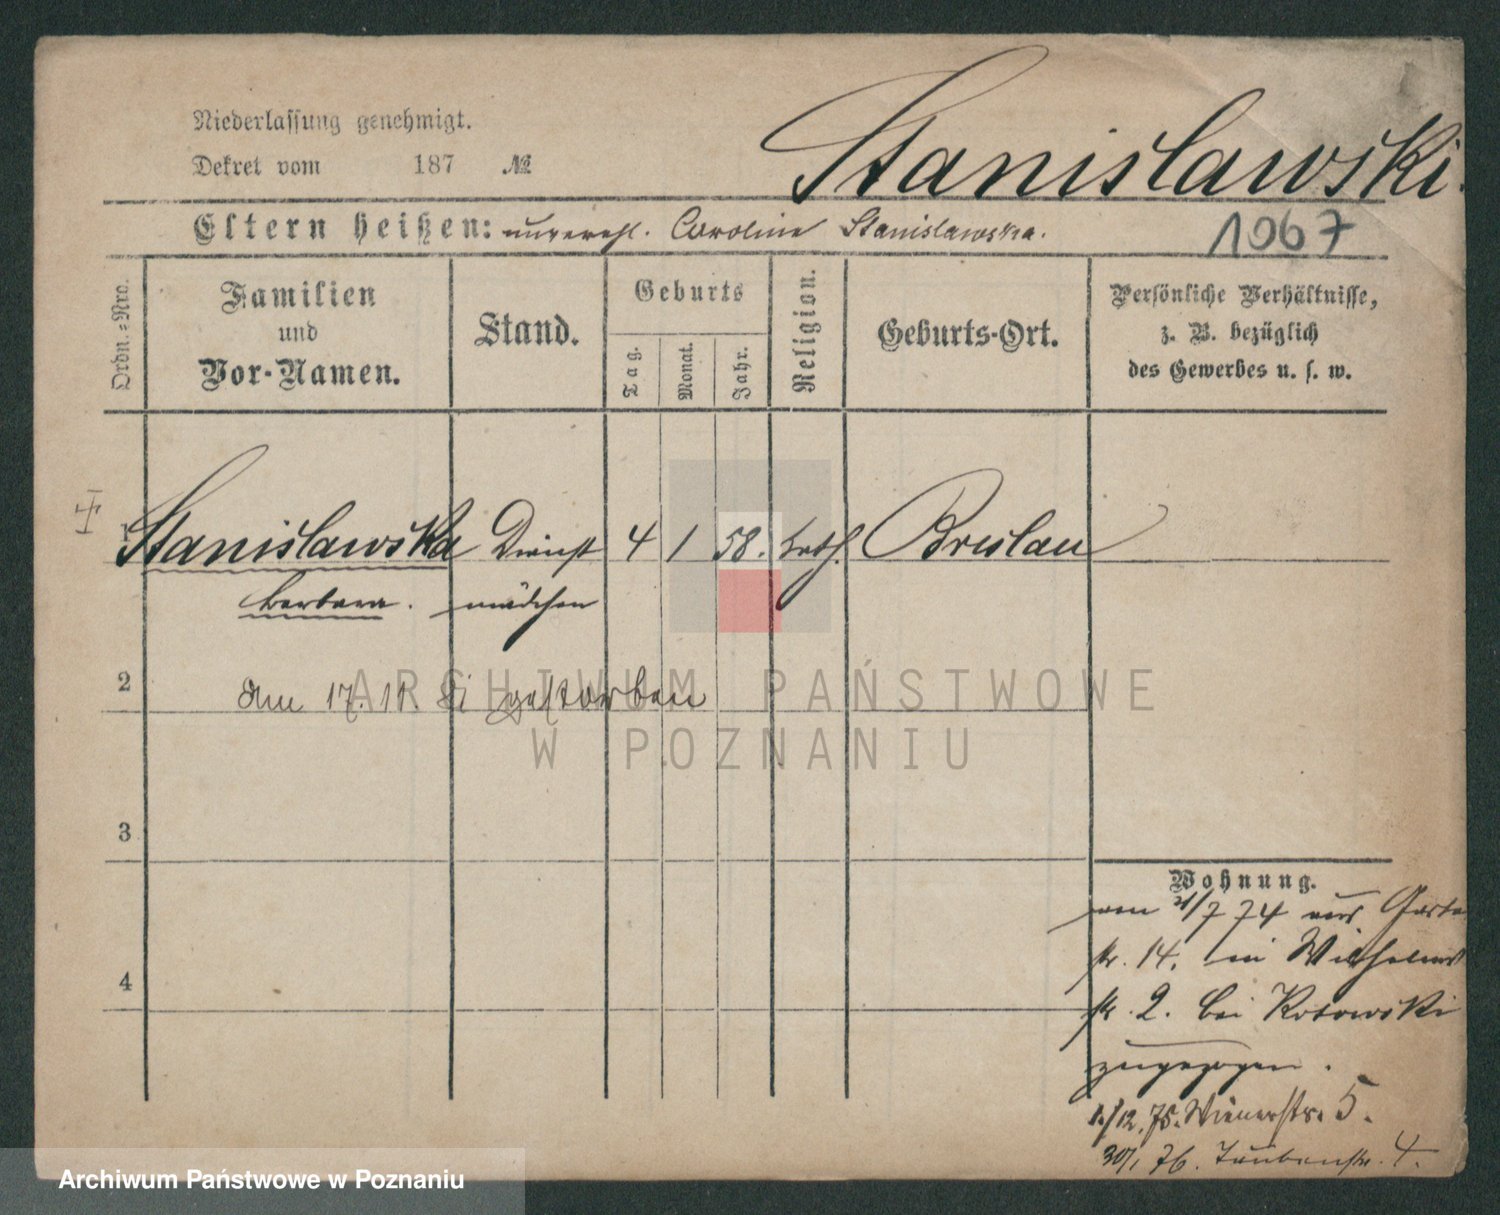 Niederlassung genehmigt.
Dekret vom 187 №
Stanislawski.
Eltern heißen: unverehl. Caroline Stanislawska.
1067
Ordn.=Nro.
Familien
und
Vor-Namen.
Stand.
Geburts
Tag.
Monat.
Jahr.
Religion.
Geburts-Ort.
Persönliche Verhältnisse,
z. B. bezüglich
des Gewerbes u. s. w.
1 Stanislawska Dienst 4 1 58. kath. Breslau
Barbara. mädchen
2 Am 17. 11. gestorben
3
4
Wohnung.
74 aus Garten
str. 14. in Wilhelms
str. 2. bei Kotowski
zugezogen.
1/12. 75. Wienerstr. 5.
30/1 76. Taubenstr. 4.
ARCHIWUM PAŃSTWOWE
W POZNANIU
Archiwum Państwowe w Poznaniu